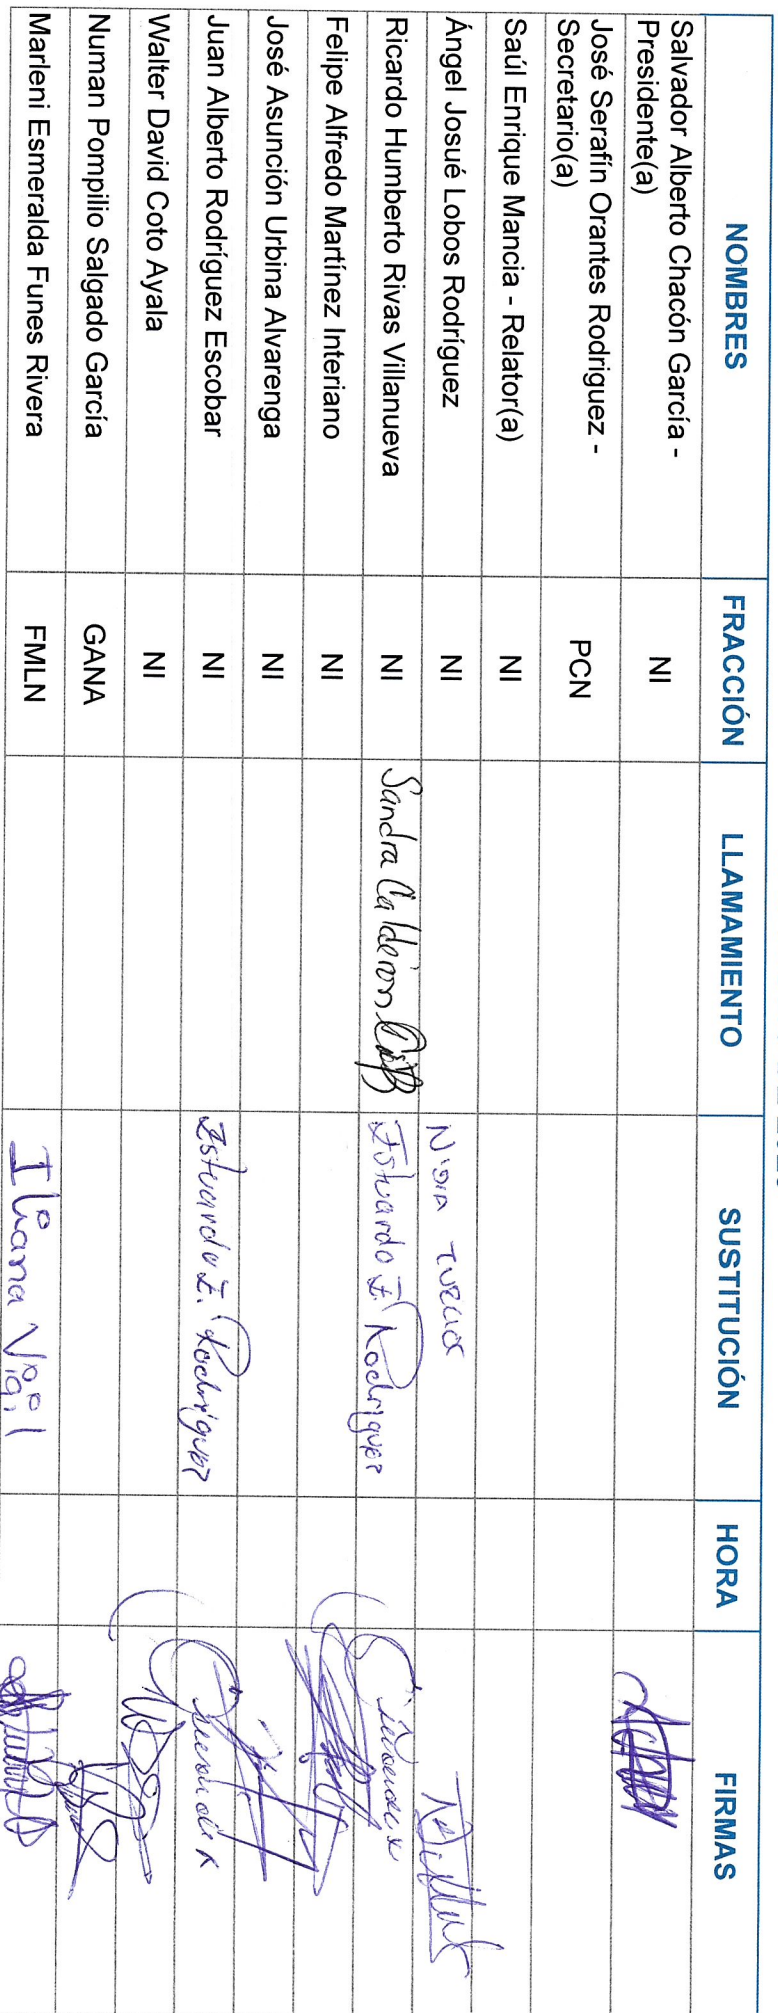 NOMBRES FRACCIÓN LLAMAMIENTO SUSTITUCIÓN HORA FIRMAS
Salvador Alberto Chacón García -
Presidente(a) NI
José Serafín Orantes Rodriguez -
Secretario(a) PCN
Saúl Enrique Mancia - Relator(a) NI
Ángel Josué Lobos Rodríguez NI Nidia Turcios
Ricardo Humberto Rivas Villanueva NI Sandra Calderon Estuardo E. Rodriguez
Felipe Alfredo Martínez Interiano NI
José Asunción Urbina Alvarenga NI
Juan Alberto Rodríguez Escobar NI Estuardo E. Rodriguez
Walter David Coto Ayala NI
Numan Pompilio Salgado García GANA
Marleni Esmeralda Funes Rivera FMLN Iliana Vigil